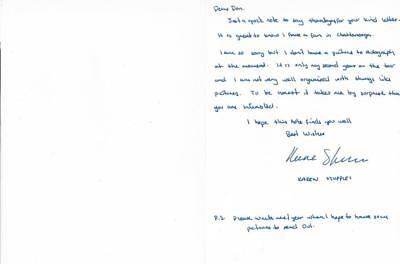 Dear Don,
Just a quick note to say thankyou for your kind letter.
It is great to know I have a fan in Chattanooga.
I am so sorry but I don't have a picture to autograph
at the moment. It is only my second year on the tour
and I am not very well organized with things like
pictures. To be honest it takes me by surprise that
you are interested.
I hope this note finds you well
Best Wishes
KAREN STUPPLES
P.S. Please write next year when I hope to have some
pictures to send out.